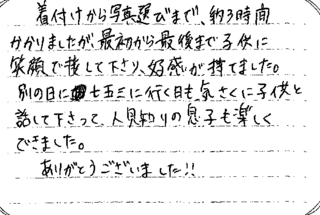 着付けから写真選びまで、約3時間
かかりましたが、最初から最後まで子供に
笑顔で接して下さり、好感が持てました。
別の日に七五三に行く日も、気さくに子供と
話して下さって、人見知りの息子も楽しく
できました。
ありがとうございました!!